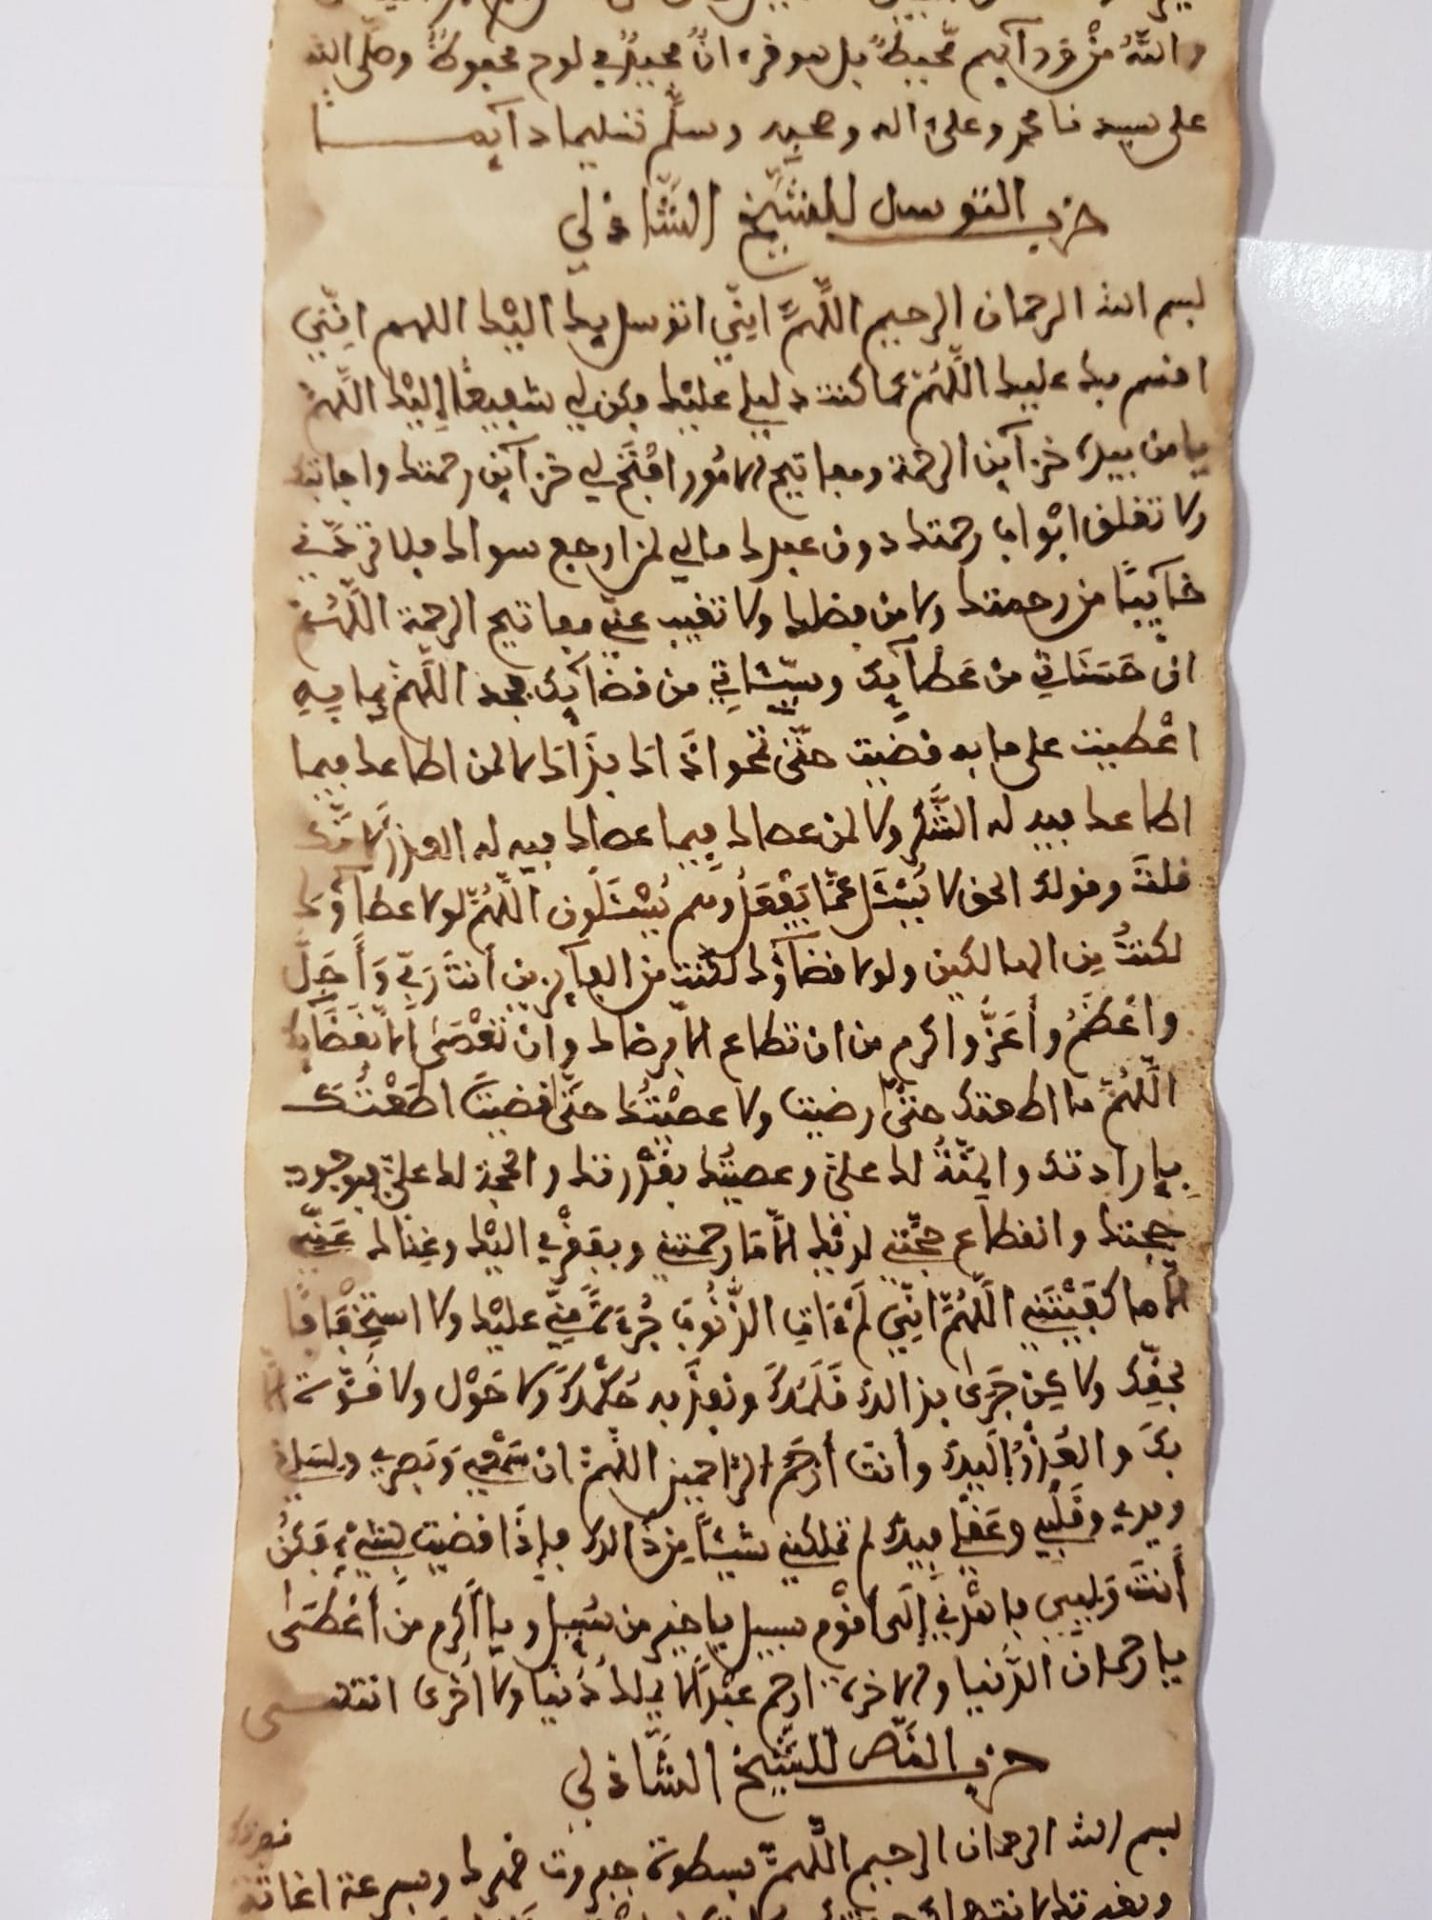 والله من ورآيهم محيط بل هو قرءان مجيد في لوح محفوظ وصلى الله
على سيدنا محمد وعلى اله وصحبه وسلم تسليما دآيمـــا
حزب التوسل للشيخ الشاذلي
بسم الله الرحمان الرحيم اللهم اني اتوسل بك اليك اللهم اني
اقسم بك عليك اللهم كما كنت دليلي عليك فكن لي شفيعا إليك اللهم
يا من بيده خزآين الرحمة ومفاتيح الامور افتح لي خزآين رحمتك واجابتك
ولا تغلق ابواب رحمتك دون عبدك مالي لمن ارجع سواك فلا تردني
خآيبا من رحمتك ولا من فضلك ولا تغيب عني مفاتيح الرحمة اللهم
ان حسناتي من عطآيك وسيئاتي من قضآيك فجد اللهم بما به
اعطيت على ما به قضيت حتى تمحو اذاك بذاك لا لمن اطاعك فيما
اطاعك فيه له الشكر ولا لمن عصاك فيما عصاك فيه له العذر لانك
قلت وقولك الحق لا يسئل عما يفعل وهم يسئلون اللهم لولا عطآؤك
لكنت من الهالكين ولولا قضآؤك لكنت من الفآيزين أنت ربي وأجل
واعظم وأعز واكرم من ان تطاع الا برضاك وأن تعصى الا بقضآيك
اللهم ما اطعتك حتى رضيت ولا عصيتك حتى قضيت اطعتك
بإرادتك والمنة لك علي وعصيتك بقدرتك والحجة لك علي فبوجود
حجتك وانقطاع حجتي لديك الا ما رحمتني وبفقري اليك وغناك عني
الا ما كفيتني اللهم اني لم ءات الذنوب جرءة مني عليك ولا استخفافا
بحقك ولا كن جرى بذالك قلمك ونفذ به حكمك ولا حول ولا قوة الا
بك والعذر إليك وأنت أرحم الراحمين اللهم ان سمعي وبصري ولساني
ويدي وقلبي وعقلي بيدك لم تملكني شيئا من ذالك فإذا قضيت بشيء فكن
أنت وليي واهدني إلى أقوم سبيل يا خير من سئل ويا أكرم من أعطى
يا رحمان الدنيا والاخرة ارحم عبدا لا يملك دنيا ولا اخرى انتهـــى
حزب النصر للشيخ الشاذلي
بسم الله الرحمان الرحيم اللهم بسطوة جبروت قهرك وبسرعة اغاثة
نصرك